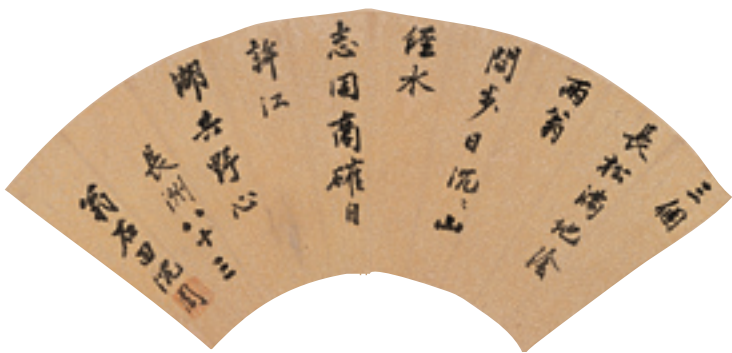 三
長松滿地陰
兩翁
閒步日沉〻山
經水
志因商確自
許江
湖共野心
長洲八十三
翁石田沈周